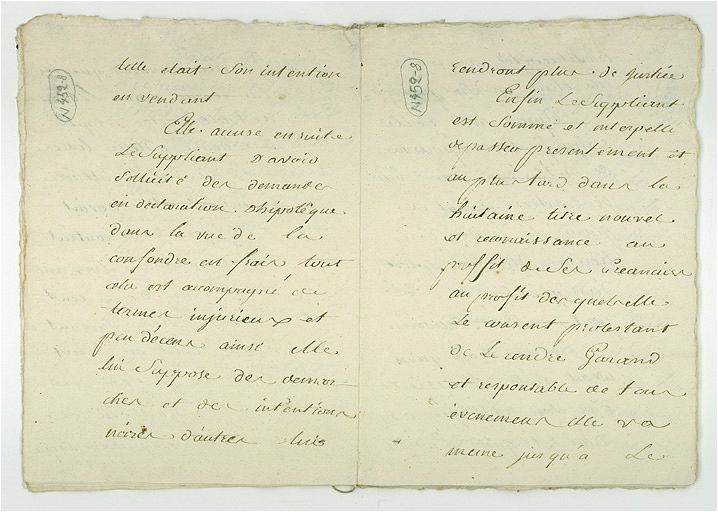 N 352-8
telle etait Son intention
en vendant
Elle accuse ensuite
Le Suppliant d'avoir
Sollicité des demandes
en declaration d'hipotêque
dans la vue de la
confondre en frais tout
cela est accompagné de
termes injurieux et
peu décens ainsi elle
lui Suppose des demar-
ches et des intentions
noires d'autres lui
N 352-8
rendront plus de justice
Enfin Le Suppliant
est Sommé et interpellé
de passer presentement et
au plus tard dans la
huitaine titre nouvel
et reconnaissance au
proffit de Ses Creanciers
au profit des quels elle
Le consent protestant
de Le rendre Garand
et responsable de tous
évenemens elle va
meme jusqu'a Le